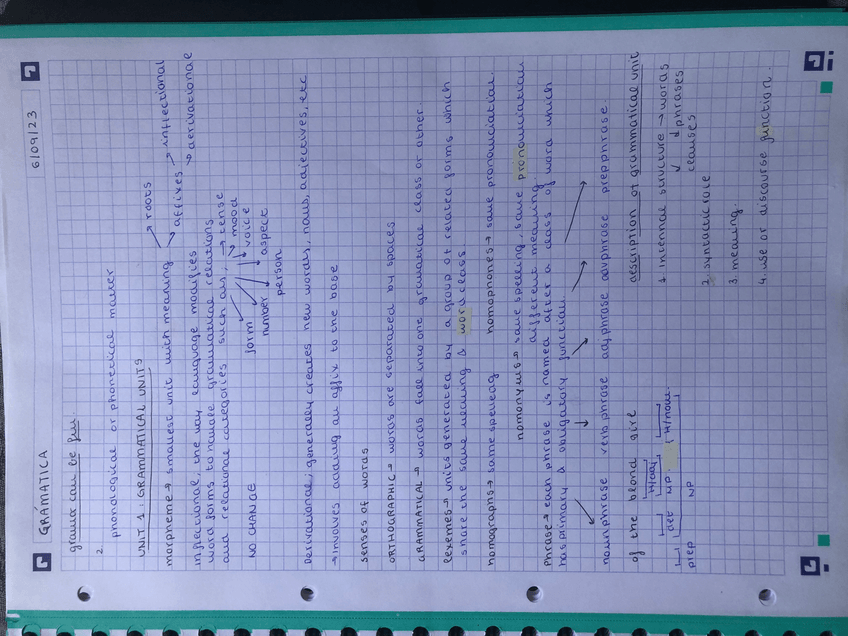 GRÁMATICA
6/09/23
gramar can be fun.
2.
phonological or phonetical matter
UNIT 1: GRAMMATICAL UNITS
morpheme → smallest unit with meaning → roots
→ affixes → inflectional
→ derivational
inflectional, the way language modifies
word forms to handle gramatical relations
and relational categories such as, → tense
mood
voice
aspect
person
number
form
NO CHANGE
Derivational: generally creates new words, nous, adjectives, etc
→ involves adding an affix to the base
senses of words
ORTHOGRAPHIC → words are separated by spaces
GRAMMATICAL → words fall into one gramatical class or other
lexemes → units generated by a group of related forms which
share the same meaning & word class.
homographs → same spelling
homophones → same pronounciation
homonyms → same spelling, same pronounciation
different meaning.
Phrase → each phrase is named after a class of word which
has primary & obligatory function.
nounphrase verb phrase adj phrase advphrase prepphrase
of the blond girl
H/adj
det NP H/noun.
prep NP
description of grammatical unit
1. internal structure → words
↓ phrases
clauses
2. syntactic role
3. meaning.
4. use or discourse function.